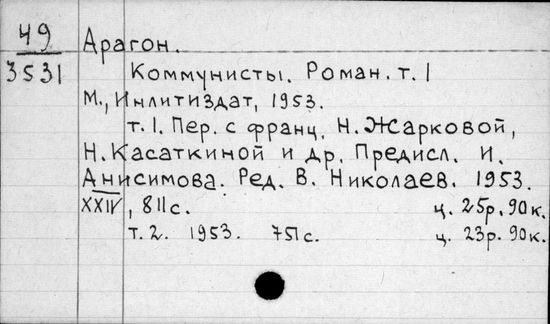 49
3531
Арагон.
Коммунисты. Роман. т. 1
М., Инлитиздат, 1953.
т. 1. Пер. с франц. Н. Жарковой,
Н. Касаткиной и др. Предисл. И.
Анисимова. Ред. В. Николаев. 1953.
XXIV, 811 с. ц. 25р. 90к.
т. 2. 1953. 751с. ц. 23р. 90к.